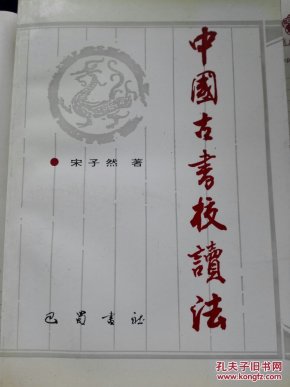 中國古書校讀法
宋子然 著
巴蜀書社
孔夫子旧书网